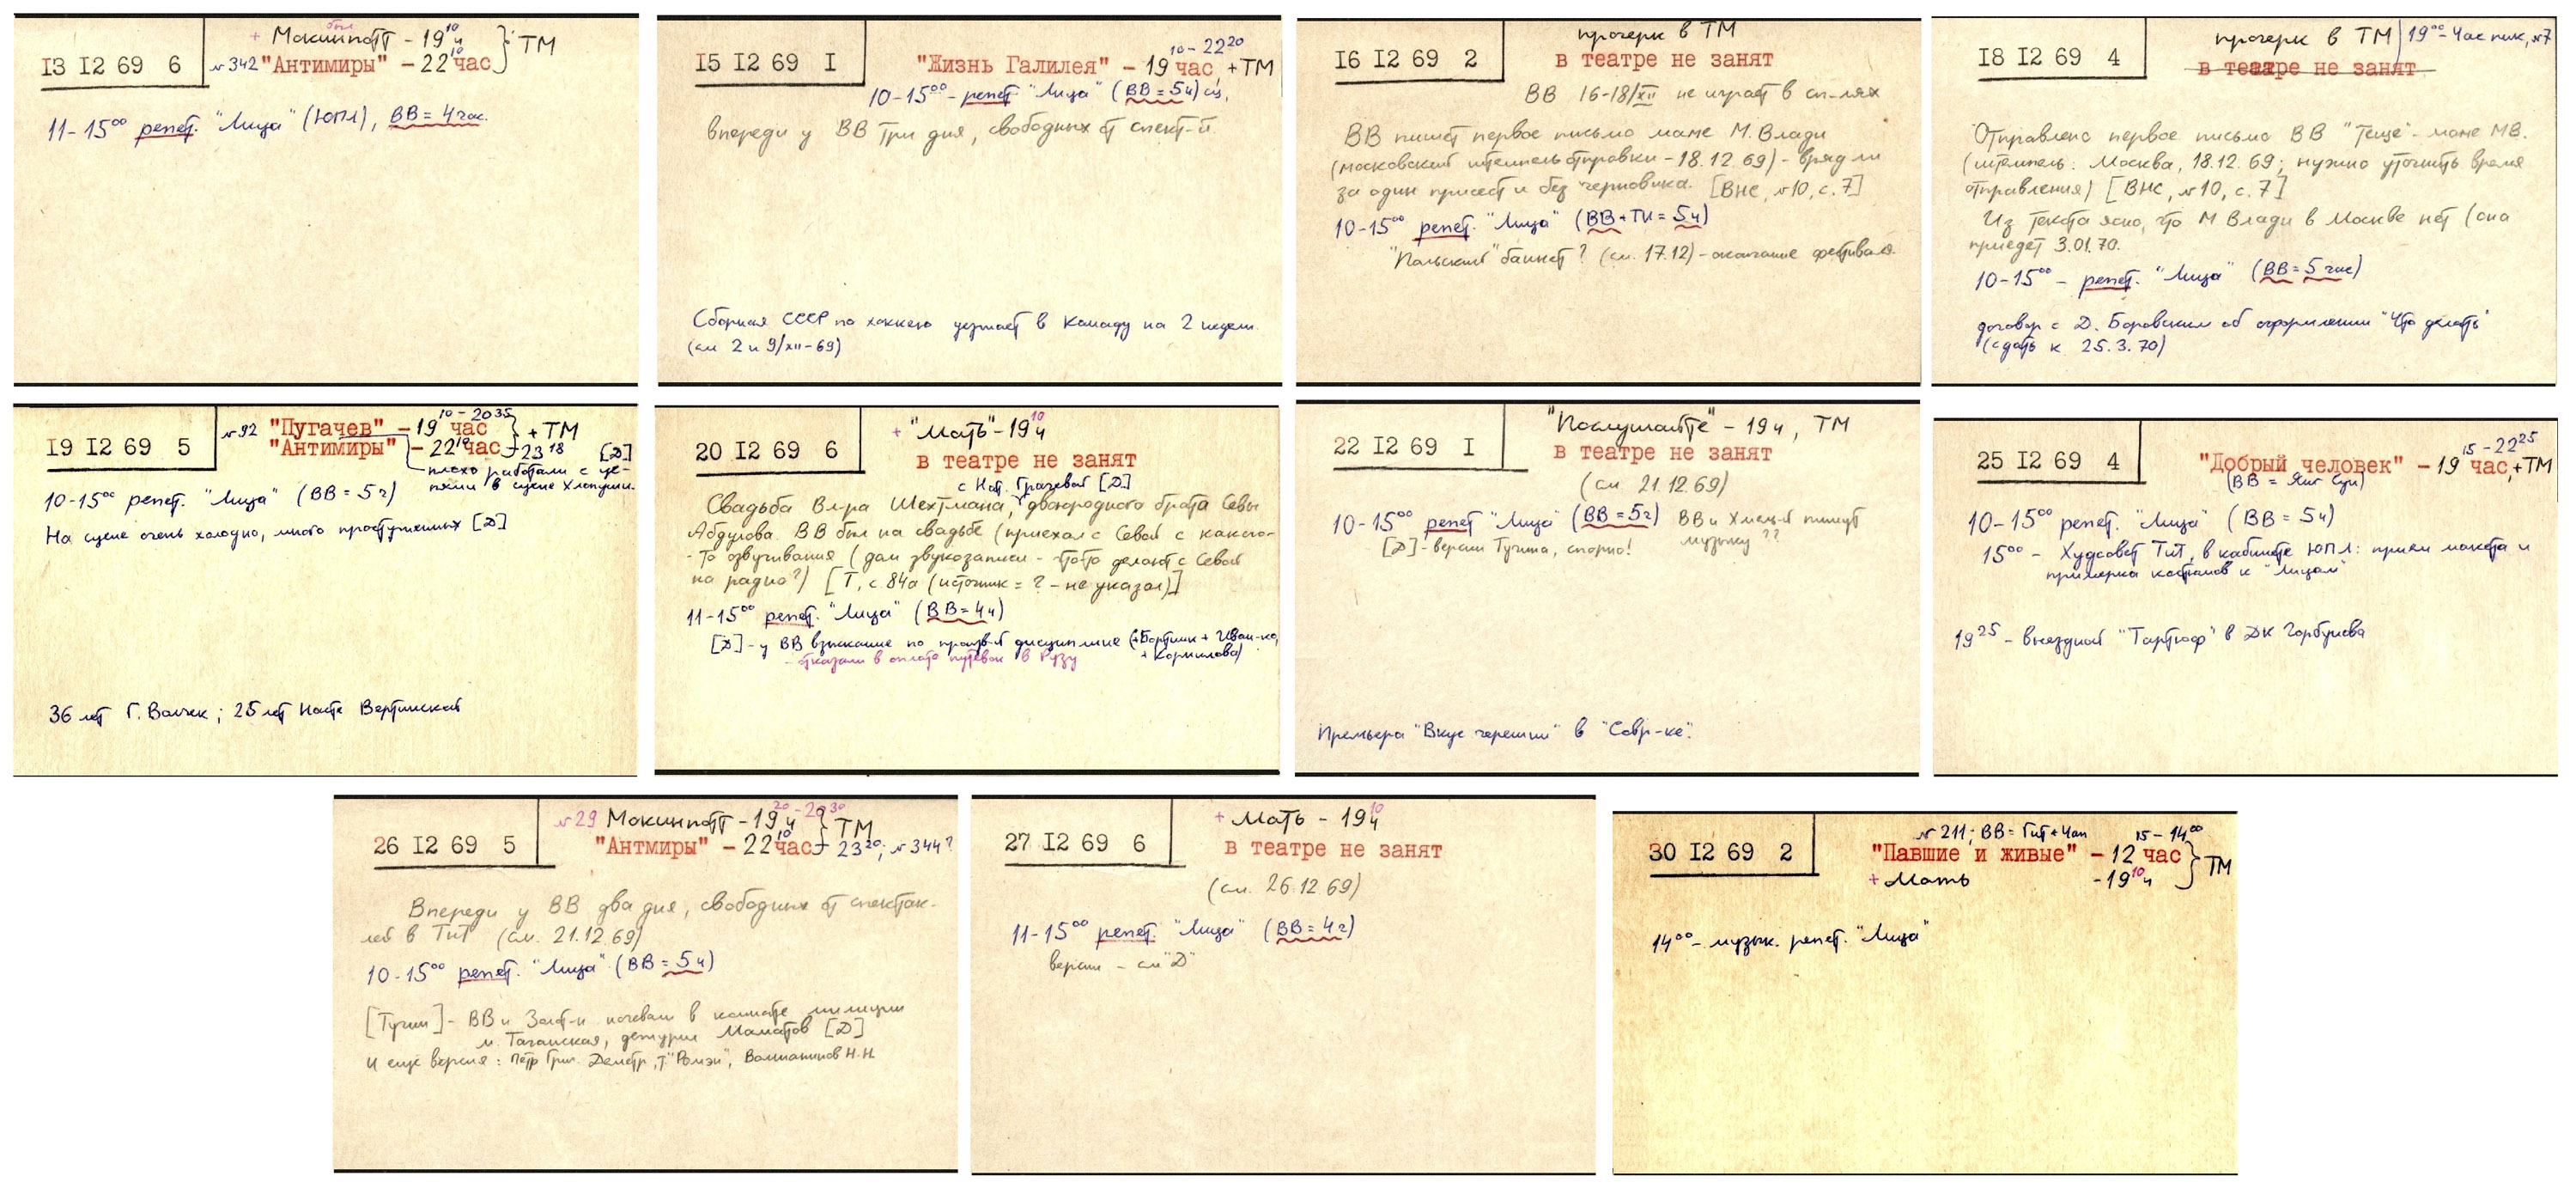 13 12 69 6
+ Мокинпотт - 19 10 ч } ТМ
был
№342 "Антимиры" - 22 10 час
11-15⁰⁰ репет. "Лица" (ЮПЛ), ВВ = 4 час.
15 12 69 1
10-22 20
"Жизнь Галилея" - 19 час, +ТМ
10-15⁰⁰ - репет. "Лица" (ВВ = 5ч)
впереди у ВВ три дня, свободных от спект-й.
Сборная СССР по хоккею уезжает в Канаду на 2 недели.
(см 2 и 9/XII-69)
16 12 69 2
прочерк в ТМ
в театре не занят
ВВ 16-18/XII не играет в сп-лях
ВВ пишет первое письмо маме М. Влади
(московский штемпель отправки - 18.12.69) - вряд ли
за один присест и без черновика. [ВНС, №10, с. 7]
10-15⁰⁰ репет. "Лица" (ВВ + ТИ = 5ч)
"Польский" банкет? (см. 17.12) - окончание фестиваля.
18 12 69 4
прочерк в ТМ | 19⁰⁰ - Час пик, №7
в театре не занят
Отправлено первое письмо ВВ "теще" - маме МВ.
(штемпель: Москва, 18.12.69; нужно уточнить время
отправления) [ВНС, №10, с. 7]
Из текста ясно, что М Влади в Москве нет (она
приедет 3.01.70.
10-15⁰⁰ - репет. "Лица" (ВВ = 5 час)
договор с Д. Боровским об оформлении "Что делать"
(сдать к 25.3.70)
19 12 69 5
10-20 35
№92 "Пугачев" - 19 час } + ТМ
"Антимиры" - 22 10 час - 23 18 [Д]
плохо работали с це-
пями в сцене Хлопуши.
10-15⁰⁰ репет. "Лица" (ВВ = 5ч)
На сцене очень холодно, много простуженных [Д]
36 лет Г. Волчек; 25 лет Насте Вертинской
20 12 69 6
+ "Мать" - 19 10 ч
в театре не занят
с Нат. Грачевой [Д]
Свадьба Вл-ра Шехтмана, двоюродного брата Севы
Абдулова. ВВ был на свадьбе (приехал с Севой с какого-
-то озвучивания (дом звукозаписи - что-то делают с Севой
на радио?) [Т, с 84а (источник = ? - не указал)]
11-15⁰⁰ репет. "Лица" (ВВ = 4ч)
[Д] - у ВВ взыскание по произв-й дисциплине (+Бортник + Иван-ко,
+ Корнилова)
- отказали в оплате путевок в Рузу
22 12 69 1
"Послушайте" - 19ч, ТМ
в театре не занят
(см. 21.12.69)
10-15⁰⁰ репет "Лица" (ВВ = 5ч) ВВ и Хмель-й пишут
музыку ??
[Д] - версии Тучина, спорно!
Премьера "Вкус черешни" в "Совр-ке".
25 12 69 4
15-22 25
"Добрый человек" - 19 час, +ТМ
(ВВ = Янг Сун)
10-15⁰⁰ репет. "Лица" (ВВ = 5ч)
15⁰⁰ - Худсовет ТиТ, в кабинете ЮПЛ: прием макета и
примерка костюмов к "Лицам"
19 25 - выездной "Тартюф" в ДК Горбунова
26 12 69 5
№29 Мокинпотт - 19 20 ч - 20 30 } ТМ
"Антмиры" - 22 10 час - 23 20; №344?
Впереди у ВВ два дня, свободных от спектак-
лей в ТиТ (см. 21.12.69)
10-15⁰⁰ репет. "Лица" (ВВ = 5ч)
[Тучин] - ВВ и Золот-н ночевали в комнате милиции
м. Таганская, дежурил Маматов [Д]
И еще версия: Петр Григ. Деметр, т. "Ромэн", Волшанинов Н.Н.
27 12 69 6
+ Мать - 19 10 ч
в театре не занят
(см. 26.12.69)
11-15⁰⁰ репет. "Лица" (ВВ = 4ч)
версии - см "Д"
30 12 69 2
№211; ВВ = Гит + Чап 15-14⁰⁰
"Павшие и живые" - 12 час } ТМ
+ Мать - 19 10 ч
14⁰⁰ - музык. репет. "Лица"